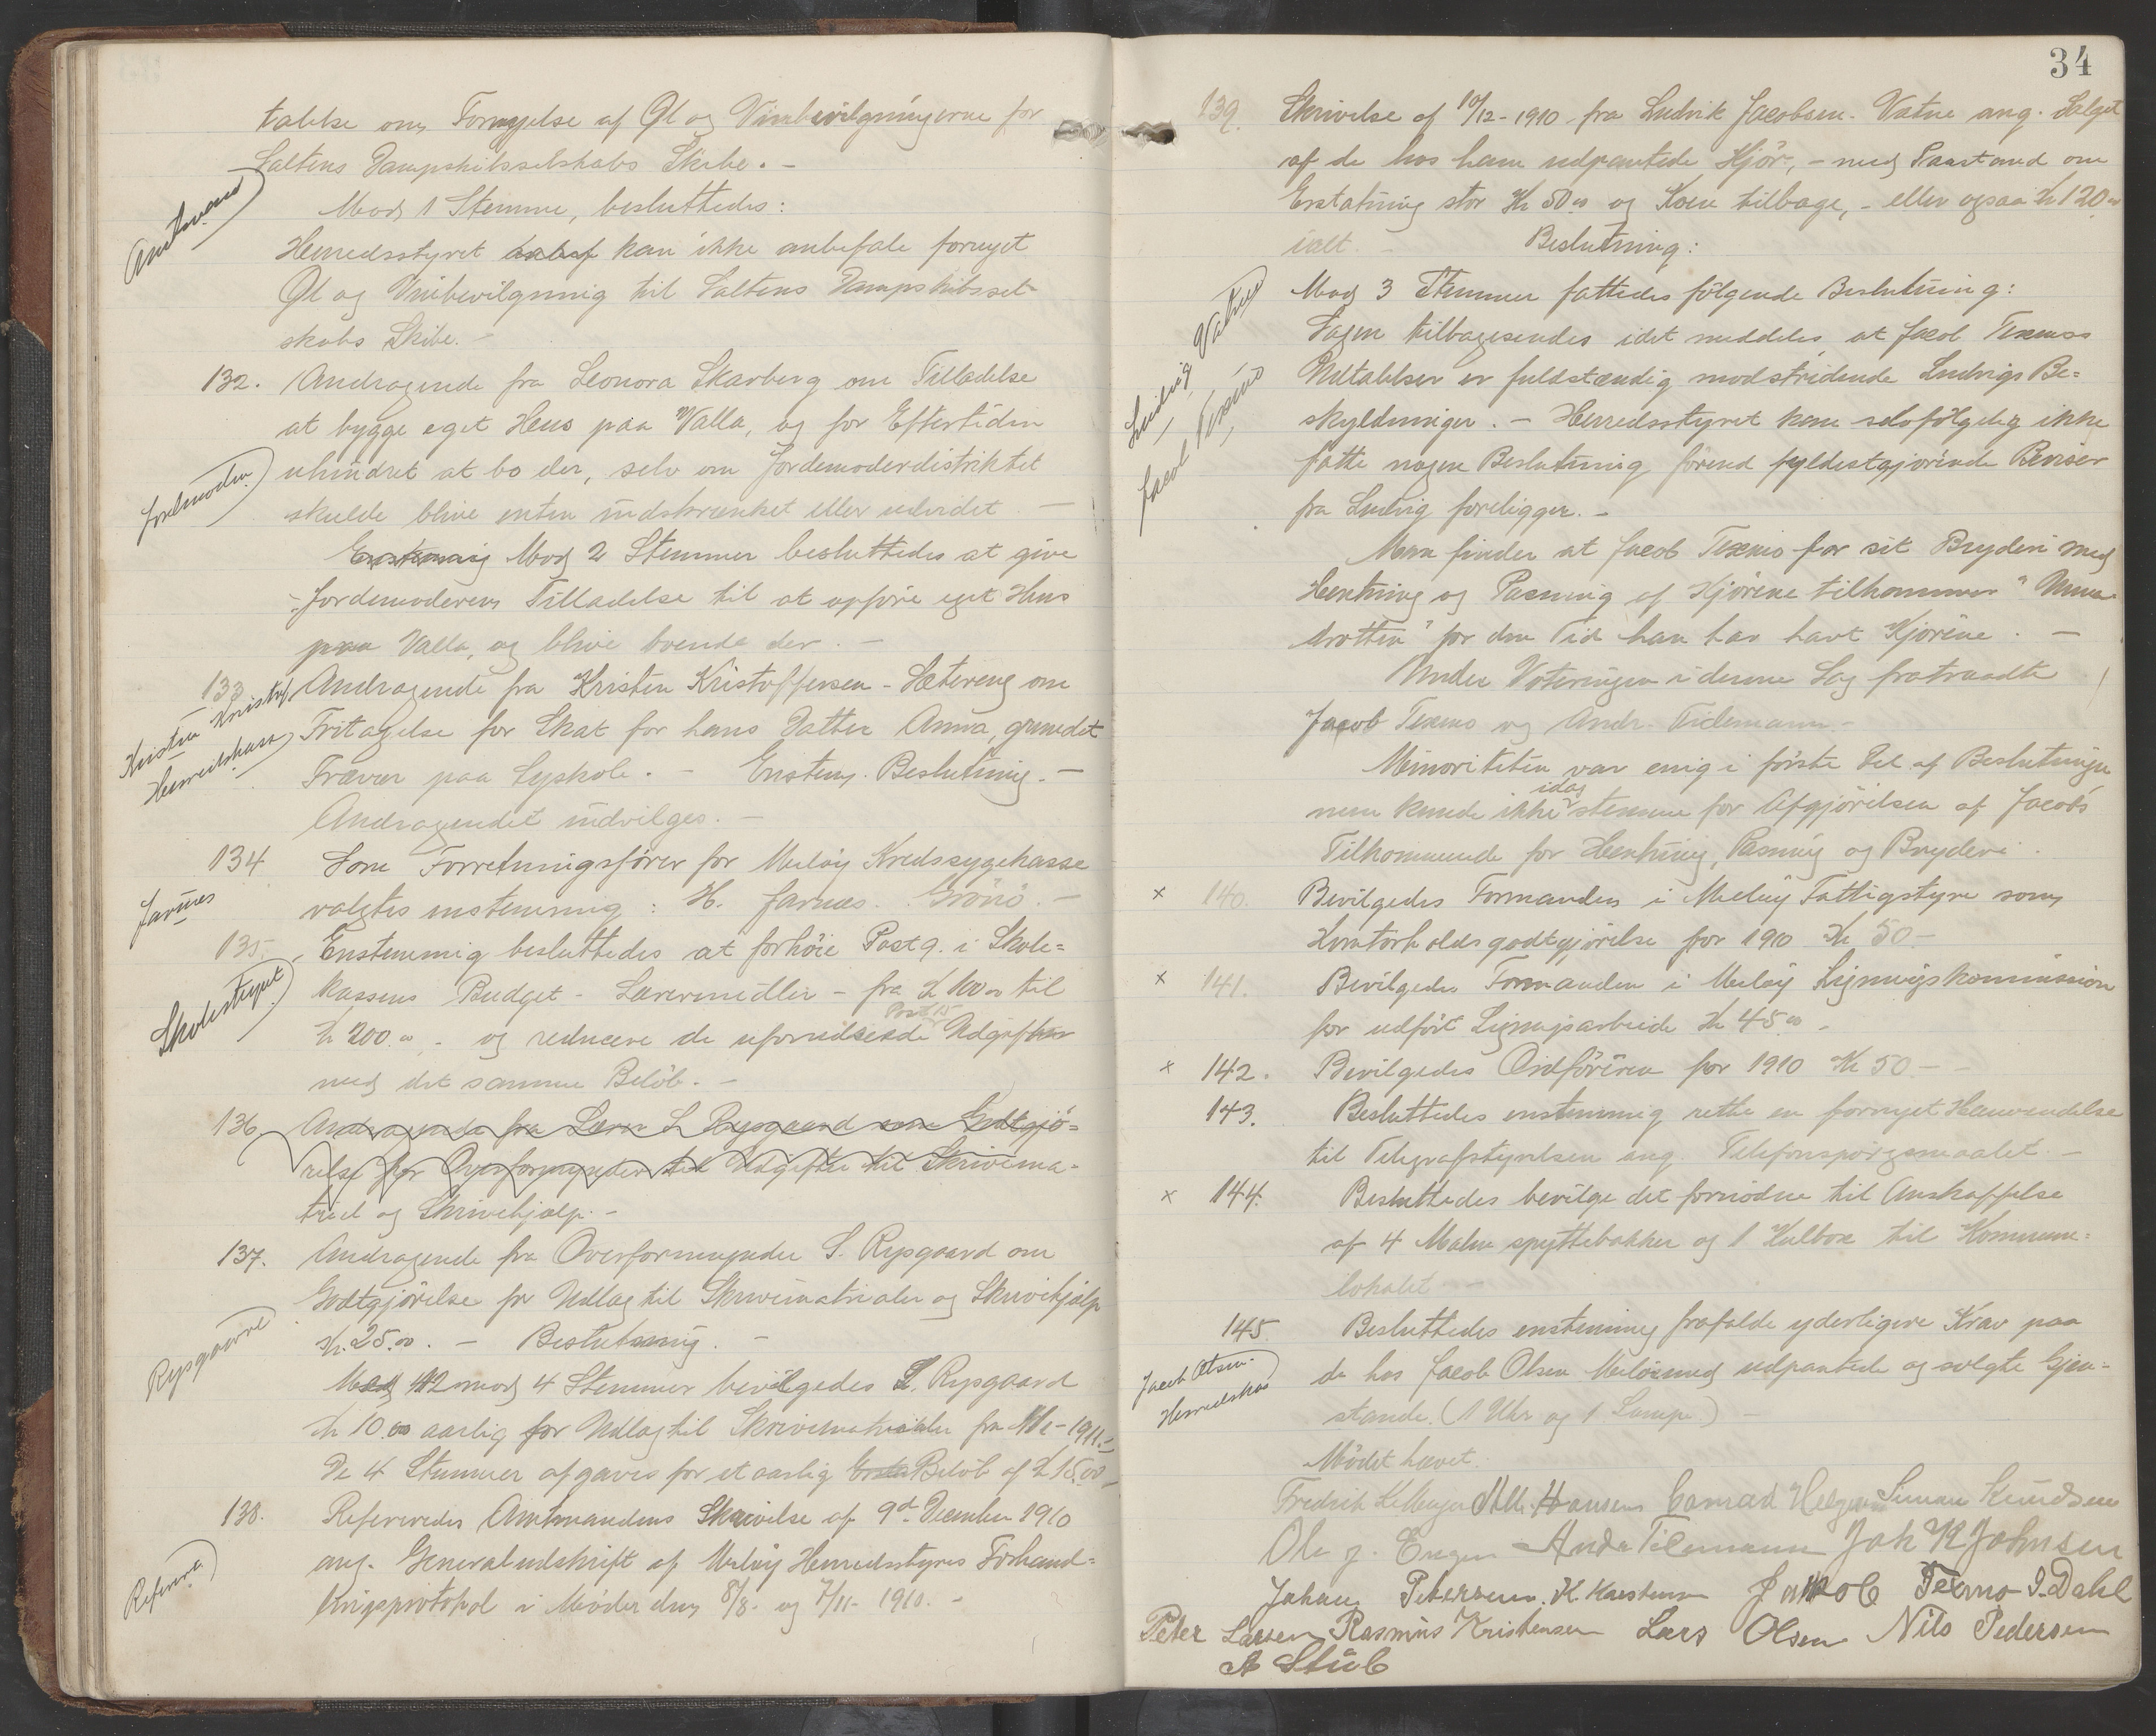 talelse om Fornyelse af Øl og Vinbevilgningerne for
Saltens Dampskibsselskabs Skibe. -
Amtmand
Mod 1 Stemme, besluttedes:
Herredsstyret kan ikke anbefale fornyet
Øl og Vinbevilgning til Saltens Dampskibssel-
skabs Skibe. -
132. Andragende fra Leonora Skarberg om Tilladelse
at bygge eget Hus paa Valla, og for Eftertiden
Jordmoder
uhindret at bo der, selv om Jordemoderdistriktet
skulde blive enten indskrænket eller udvidet. -
Enstemmig Mod 2 Stemmer besluttedes at give
Jordemoderen Tilladelse til at opføre eget Hus
paa Valla, og blive boende der. -
133 Andragende fra Kristen Kristoffersen - Sætereng om
Kristen Kristof.
Herredskasse
Fritagelse for Skat for hans Datter Anna, grundet
Fravær paa Syskole. - Enstem. Beslutning. -
Andragendet indvilges. -
134 Som Forretningsfører for Meløy Kredssygekasse
Jarnæs
valgtes enstemmig: H. Jarnæs. Grönö. -
135. Enstemmig besluttedes at forhöie Post 9. i Skole=
Skolestyret
kassens Budget - Læremidler - fra K 100 00 til
Post 15
K 200.00. - og reducere de uforudseede Udgifter
med det samme Belöb. -
136. Andragende fra Lærer L Rysgaard om Godtgjö=
relse for Overformynder til Udgifter til Skrivema-
triel og Skrivehjælp. -
137. Andragende fra Overformynder S. Rysgaard om
Godtgjörelse for Udlag til Skrivematrialer og Skrivehjælp
Rysgaard
Kr. 25.00. - Beslutning. -
Med 12 mod 4 Stemmer bevilgedes L. Rysgaard
K 10.00 aarlig for Udlag til Skrivematrialer fra 1/1 - 1911. -
De 4 Stemmer afgaves for et aarlig Belöb af K 15.00
138. Refereredes Amtmandens Skrivelse af 9d December 1910
Referera
ang. Generaludskrift af Meløy Herredsstyres Forhand=
lingsprotokol i Møder den 8/8. og 7/11 - 1910. -
34
139. Skrivelse af 10/12 - 1910 fra Ludvik Jacobsen - Vatne ang. Salget
af de hos ham udpantede Kjör, - med Paastand om
Erstatning stor Kr 50 00 og Koen tilbage, - eller ogsaa K 120 00
ialt. - Beslutning:
Ludvig Vatne
Jacob Texmo
Mod 3 Stemmer fattedes fölgende Beslutning:
Sagen tilbagesendes idet meddeles, at Jacob Texmos
Udtalelser er fuldstændig modstridende Ludvigs Be=
skyldninger. - Herredsstyret kan selvfölgelig ikke
fatte nogen Beslutning förend fyldestgjörende Beviser
fra Ludvig foreligger. -
Man finder at Jacob Texmo for sit Bryderi med
Hentning og Pasning af Kjörene tilkommer "
drotten" for den Tid han har havt Kjörene. -
Under Voteringen i denne Sag fratraadte
Jacob Texmo og Andr. Tidemann -
Minoriteten var enig i förste Del af Beslutningen
idag
men kunde ikke stemme for Afgjörelsen af Jacob's
Tilkommende for Hentning, Pasning og Bryderi.
x 140. Bevilgedes Formanden i Meløy Fattigstyre som
Kontorholdsgodtgjörelse for 1910 Kr 50. -
x 141. Bevilgedes Formanden i Meløy Ligningskommission
for udfört Ligningsarbeide Kr 45.00 -
x 142. Bevilgedes Ordföreren for 1910 Kr 50. - -
143. Besluttedes enstemmig rette en fornyet Henvendelse
til Telegrafstyrelsen ang. Telefonspörgsmaalet. -
x 144. Besluttedes bevilge det fornödne til Anskaffelse
af 4 Malm spyttebakker og 1 Kulbox til Kommune=
lokalet -
145. Besluttedes enstemmig frafalde yderligere Krav paa
Jacob Olsen.
Herredskas
de hos Jacob Olsen udpantede og solgte Gjen=
stande. (1 Uhr og 1 Lampe) -
Mödet hævet.
Fredrik Hansen Conrad Simon Knudsen
Ole J. Engen Andr Tidemann Joh K Johnsen
Johan Petersen. K. Karstensen Jakob Texmo I. Dahl
Peter Larsen Rasmus Kristensen Lars Olsen Nils Pedersen
A Stub